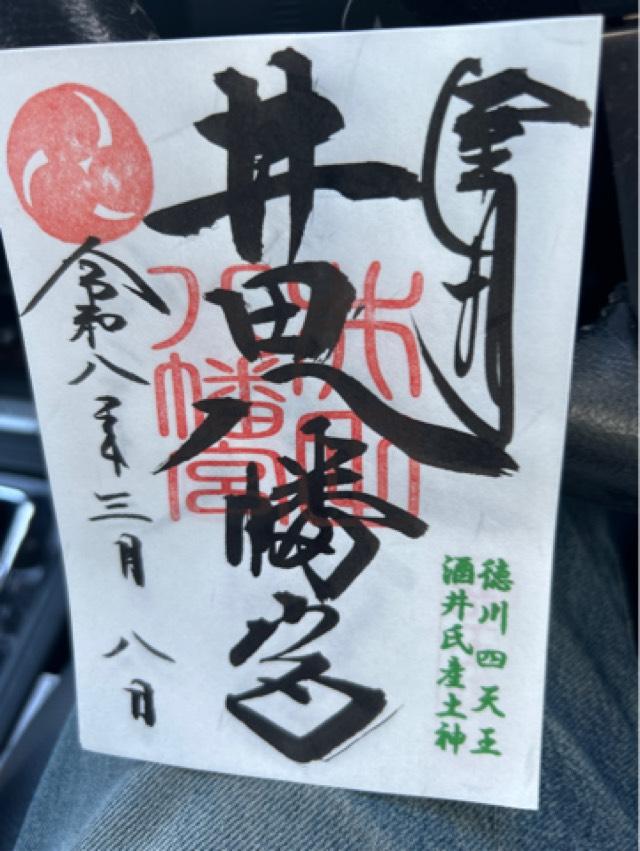 徳川四天王
酒井氏産土神
井田八幡宮
八幡宮
令和八年三月八日